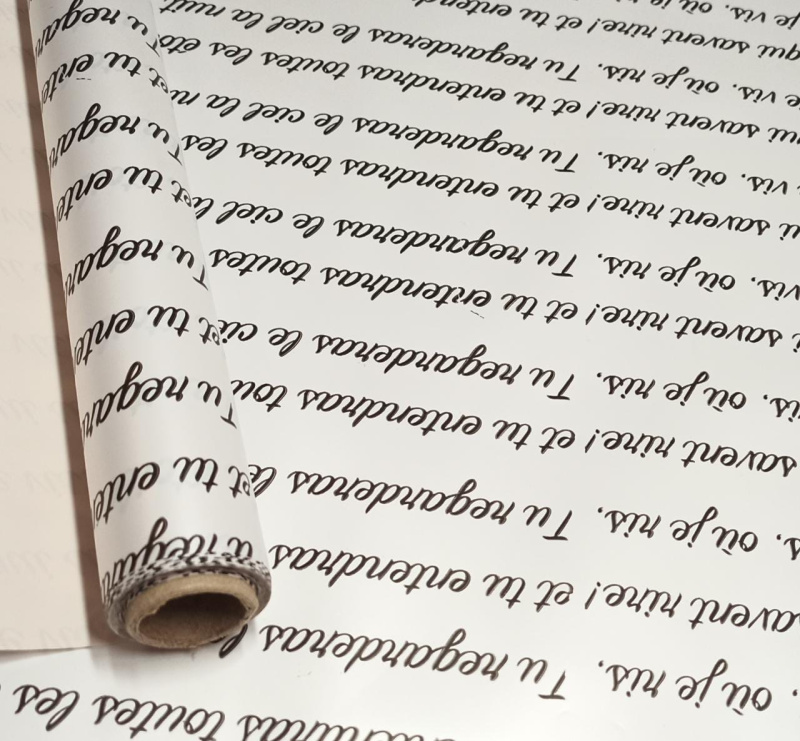 toutes les
où je ris. Tu regarderas
savent rire! et tu entendras
où je ris. Tu regarderas le
savent rire! et tu entendras tou
où je ris. Tu regarderas le ciel
savent rire! et tu entendras toutes
vis. où je ris. Tu regarderas le ciel
savent rire! et tu entendras toutes les
vis. où je ris. Tu regarderas le ciel la
qui savent rire! et tu entendras toutes les éto
vis. où je ris. Tu regarderas le ciel la nuit
qui savent rire! et tu
je vis. où je
Tu regar
et tu ente
Tu regar
et tu ente
Tu regar
et tu ente
Tu regar
et tu ente
Tu regar